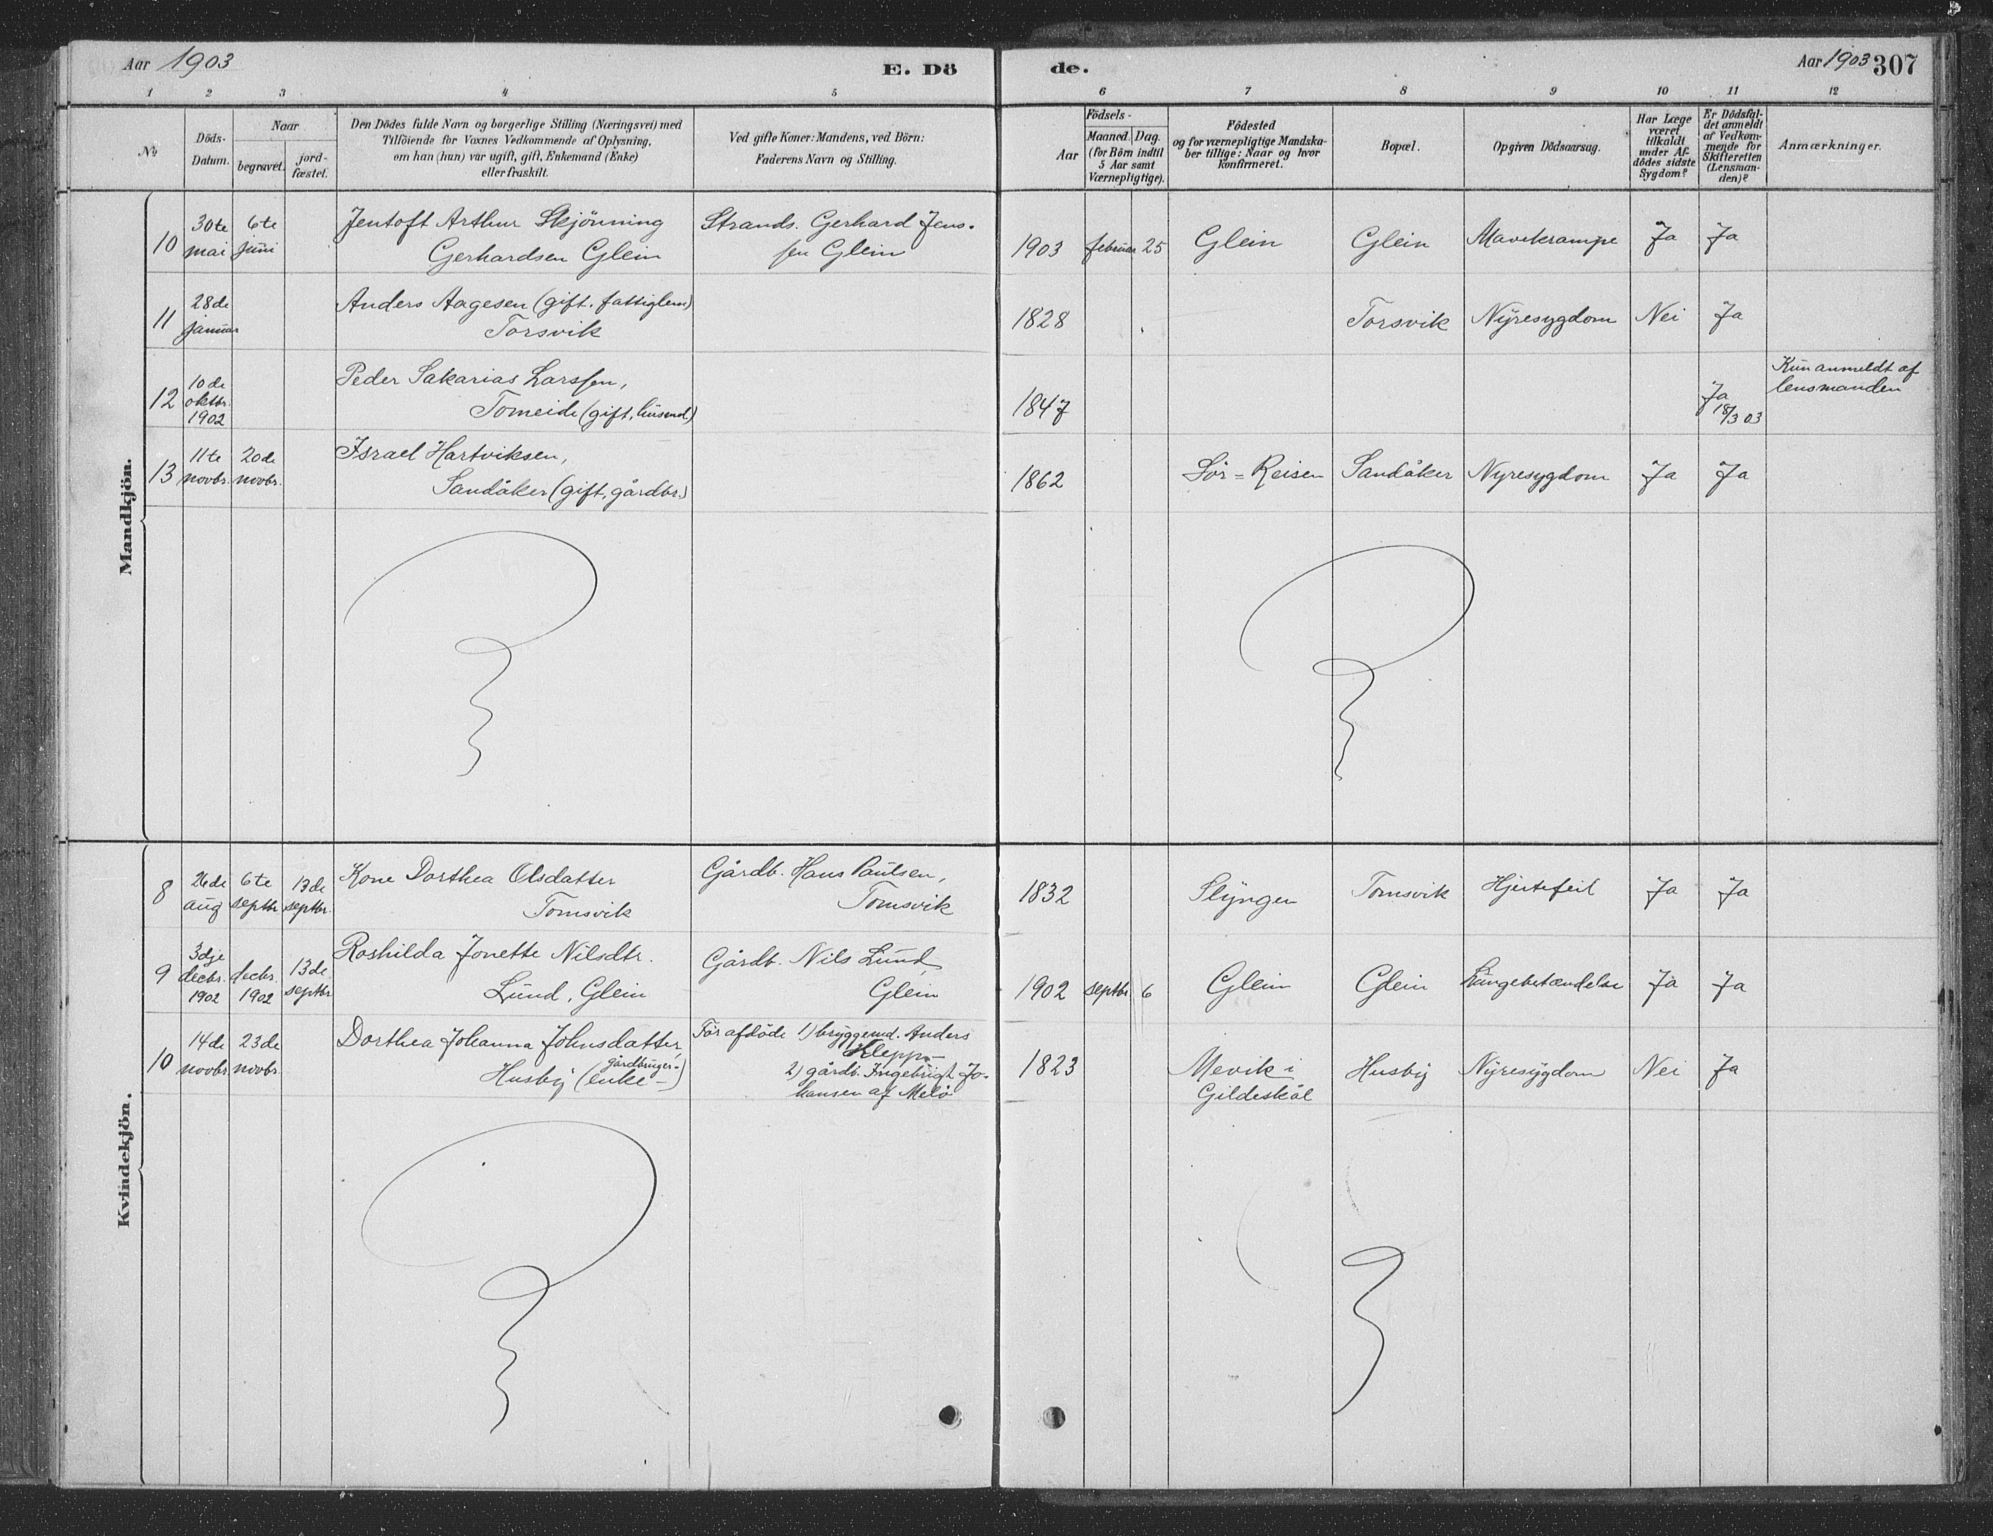 Aar 1903
E. Dö
de.
Aar 1903 307
1 2 3 4 5 6 7 8 9 10 11 12
No
Döds-
Datum.
Naar
begravet.
jord-
fæstet.
Den Dödes fulde Navn og borgerlige Stilling (Næringsvei) med
Tilföiende for Voxnes Vedkommende af Oplysning,
om han (hun) var ugift, gift, Enkemand (Enke)
eller fraskilt.
Ved gifte Koner: Mandens, ved Börn:
Faderens Navn og Stilling.
Födsels-
Aar
Maaned. Dag.
(for Börn indtil
5 Aar samt
Værnepligtige).
Födested
og for værnepligtige Mandska-
ber tillige: Naar og hvor
konfirmeret.
Bopæl.
Opgiven Dödsaarsag.
Har Læge
været
tilkaldt
under Af-
dödes sidste
Sygdom?
Er Dödsfal-
det anmeldt
af Vedkom-
mende for
Skifteretten
(Lensman-
den)?
Anmærkninger.
Mandkjön.
10 30te mai 6te juni Jentoft Arthur Skjönning Strands. Gerhard Jens-
Gerhardsen Glein sen Glein 1903 februar 25 Glein Glein Mavekrampe Ja Ja
11 28de januar Anders Aagesen (gift, fattiglem)
Torsvik 1828 Torsvik Nyresygdom Nei Ja
12 10de oktbr. 1902 Peder Sakarias Larssen,
Tomeide (gift, husmd) 1847 Ja 18/3 03 Kun anmeldt af
lensmanden
13 11te novbr. 20de novbr. Israel Hartviksen,
Sandåker (gift, gårdbr.) 1862 Sör-Reisen Sandåker Nyresygdom Ja Ja
Kvindekjön.
8 26de aug 6te septbr 13de septbr. Kone Dorthea Olsdatter Gårdb. Hans Paulsen,
Tomsvik Tomsvik 1832 Slyngen Tomsvik Hjertefeil Ja Ja
9 3dje decbr. 1902 decbr. 1902 13de septbr Roshilda Jonette Nilsdtr. Gårdb. Nils Lund
Lund, Glein Glein 1902 septbr 6 Glein Glein Lungebetændelse Ja Ja
10 14de novbr. 23de novbr. Dorthea Johanna Johnsdatter, För afdöde 1) bryggemd. Anders
Husby (gårdbruger-
enke-) Klepp-
2) gårdb. Ingebrigt Jo-
hansen af Melö 1823 Mevik i
Gildeskål Husby Nyresygdom Nei Ja